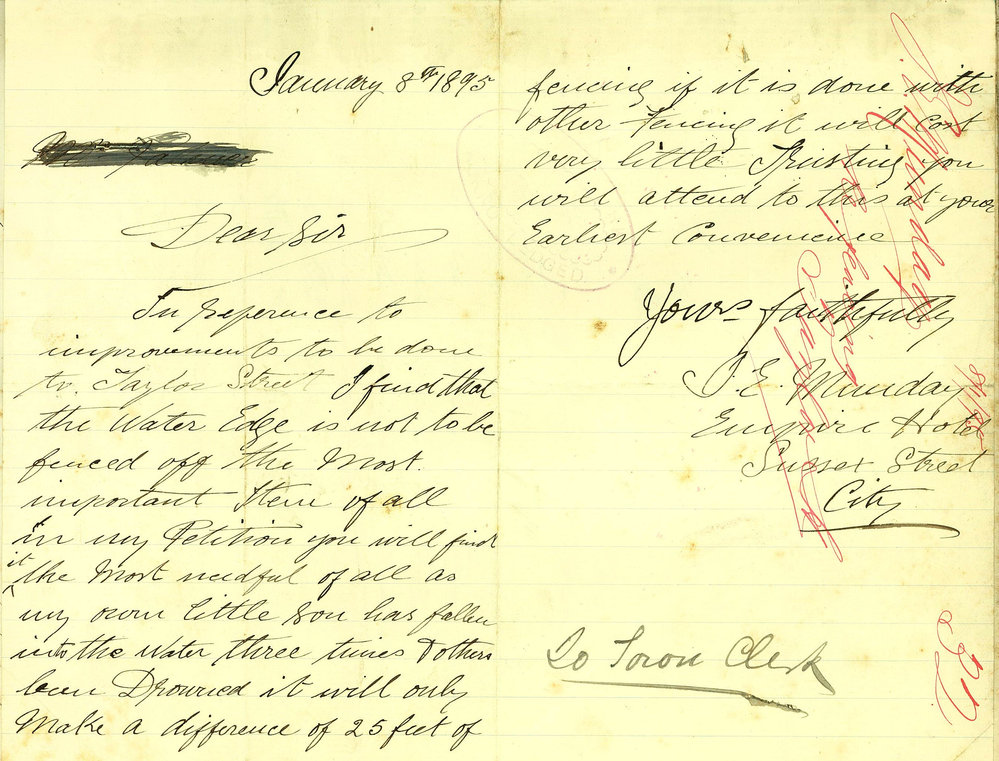 January 8th 1895
Dear Sir
In reference to
improvements to be done
to Taylor Street I find that
the Water Edge is not to be
fenced off the Most
important Item of all
in my Petition you will find
it
the Most needful of all as
my own little son has fallen
into the water three times & others
been Drowned it will only
Make a difference of 25 feet of
fencing if it is done with
other Fencing it will cost
very little Trusting you
will attend to this at your
Earliest Convenience
Yours faithfully
J. E. Munday
Empire Hotel
Sussex Street
City
To Town Clerk
LODGED
Munday
City Surveyor
8/1/95